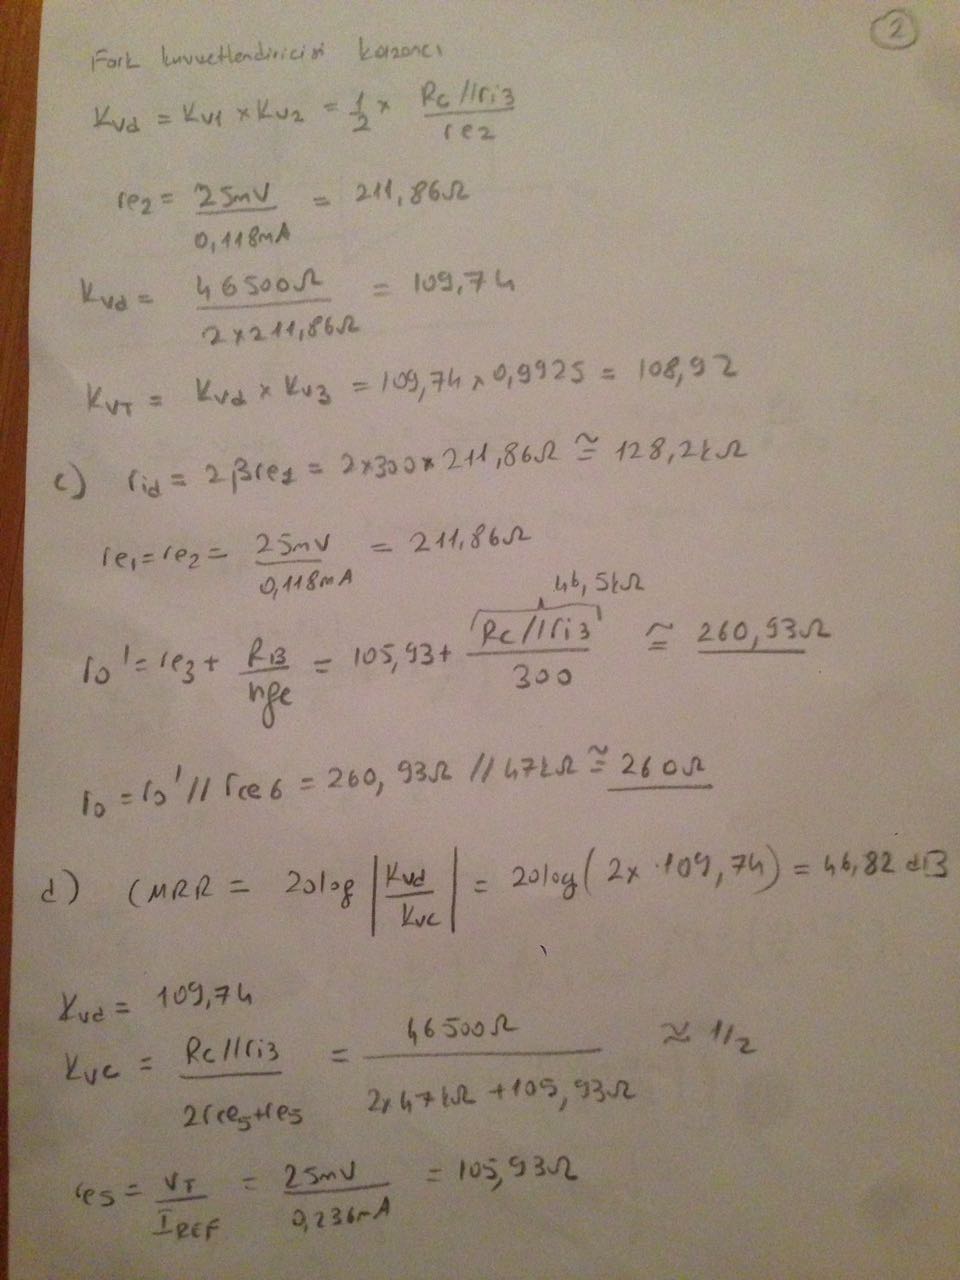 2
Fark kuvvetlendiricisi kazancı
Kvd = Kv1 x Kv2 = 1/2 x Rc//ri3 / re2
re2 = 25mV / 0,118mA = 211,86Ω
Kvd = 46500Ω / 2x211,86Ω = 109,74
KvT = Kvd x Kv3 = 109,74 x 0,9925 = 108,92
c) rid = 2βre1 = 2x300x211,86Ω ≅ 128,2kΩ
re1 = re2 = 25mV / 0,118mA = 211,86Ω
46,5kΩ
ro' = re3 + RB / hfe = 105,93 + Rc//ri3 / 300 ≅ 260,93Ω
ro = ro' // rce6 = 260,93Ω // 47kΩ ≅ 260Ω
d) CMRR = 20log |Kvd / Kvc| = 20log(2x 109,74) = 46,82 dB
Kvd = 109,74
Kvc = Rc//ri3 / 2rce5+re5 = 46500Ω / 2x47kΩ + 105,93Ω ≈ 1/2
re5 = VT / IREF = 25mV / 0,236mA = 105,93Ω